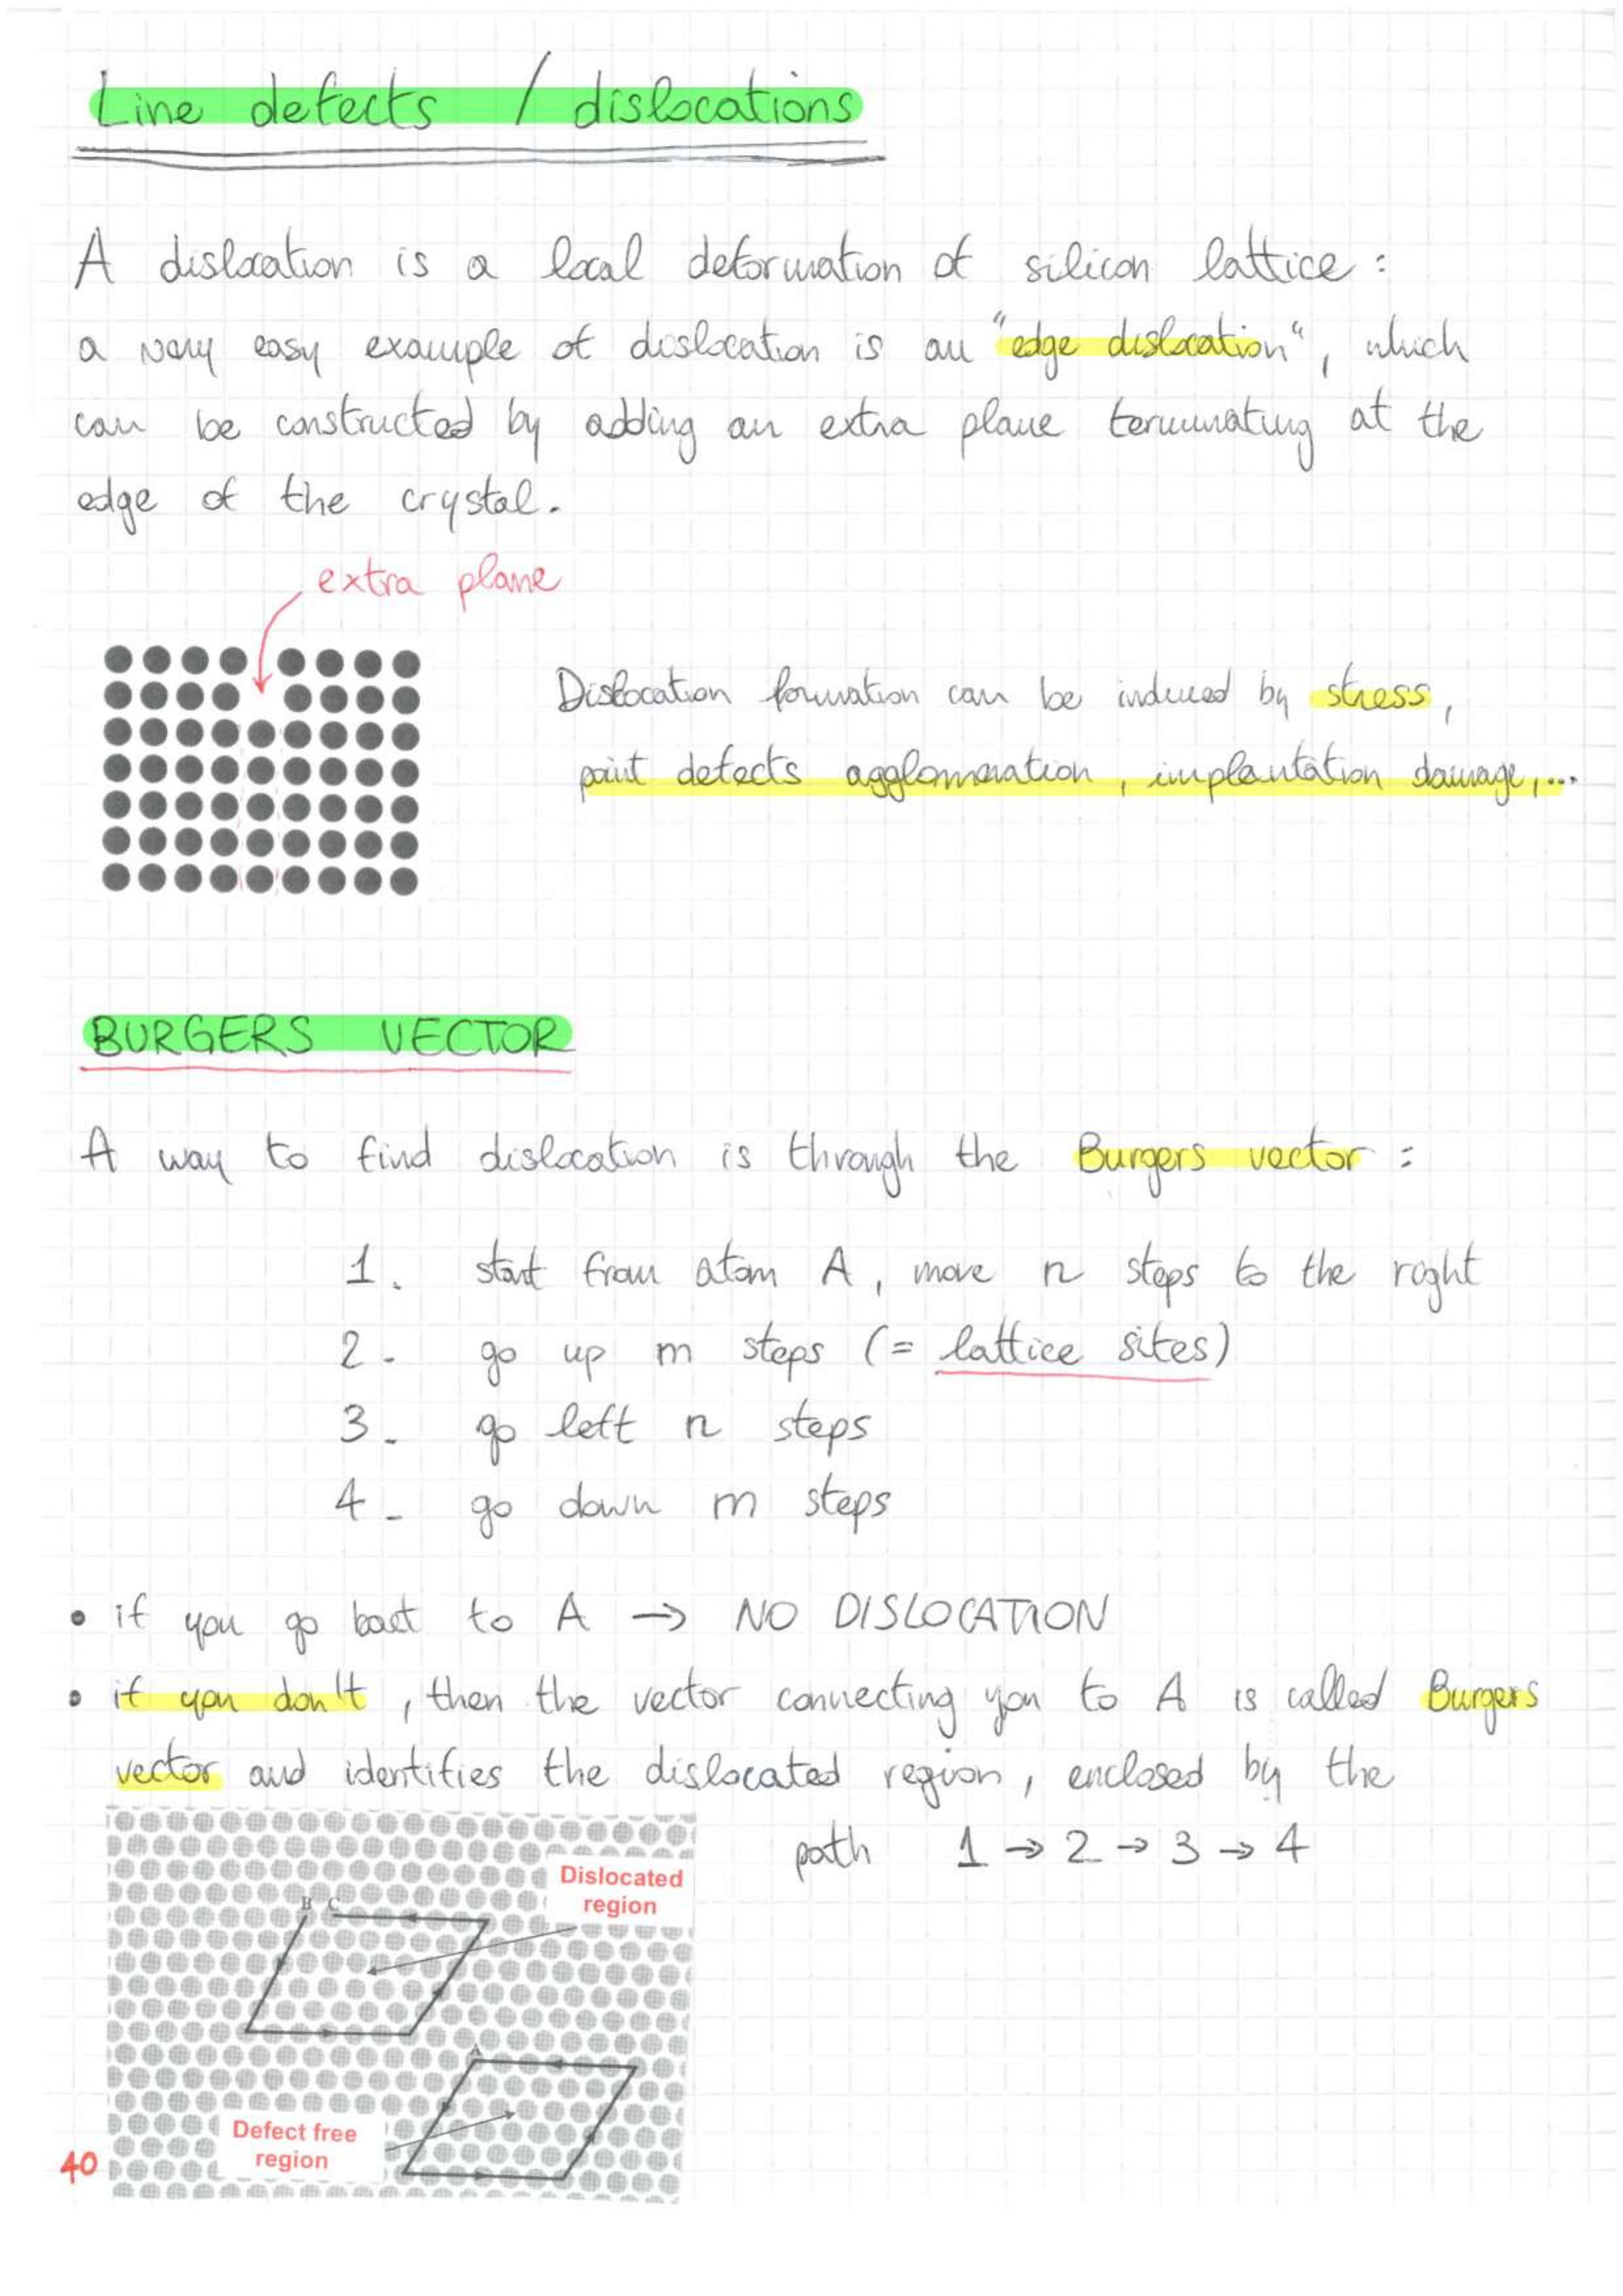 Line defects / dislocations
A dislocation is a local deformation of silicon lattice:
a very easy example of dislocation is an "edge dislocation", which
can be constructed by adding an extra plane terminating at the
edge of the crystal.
extra plane
Dislocation formation can be induced by stress,
point defects agglomeration, implantation damage,...
BURGERS VECTOR
A way to find dislocation is through the Burgers vector:
1. start from atom A, move n steps to the right
2- go up m steps (= lattice sites)
3- go left n steps
4- go down m steps
• if you go back to A → NO DISLOCATION
• if you don't, then the vector connecting you to A is called Burgers
vector and identifies the dislocated region, enclosed by the
path 1 → 2 → 3 → 4
Dislocated
region
B C
A
Defect free
region
40